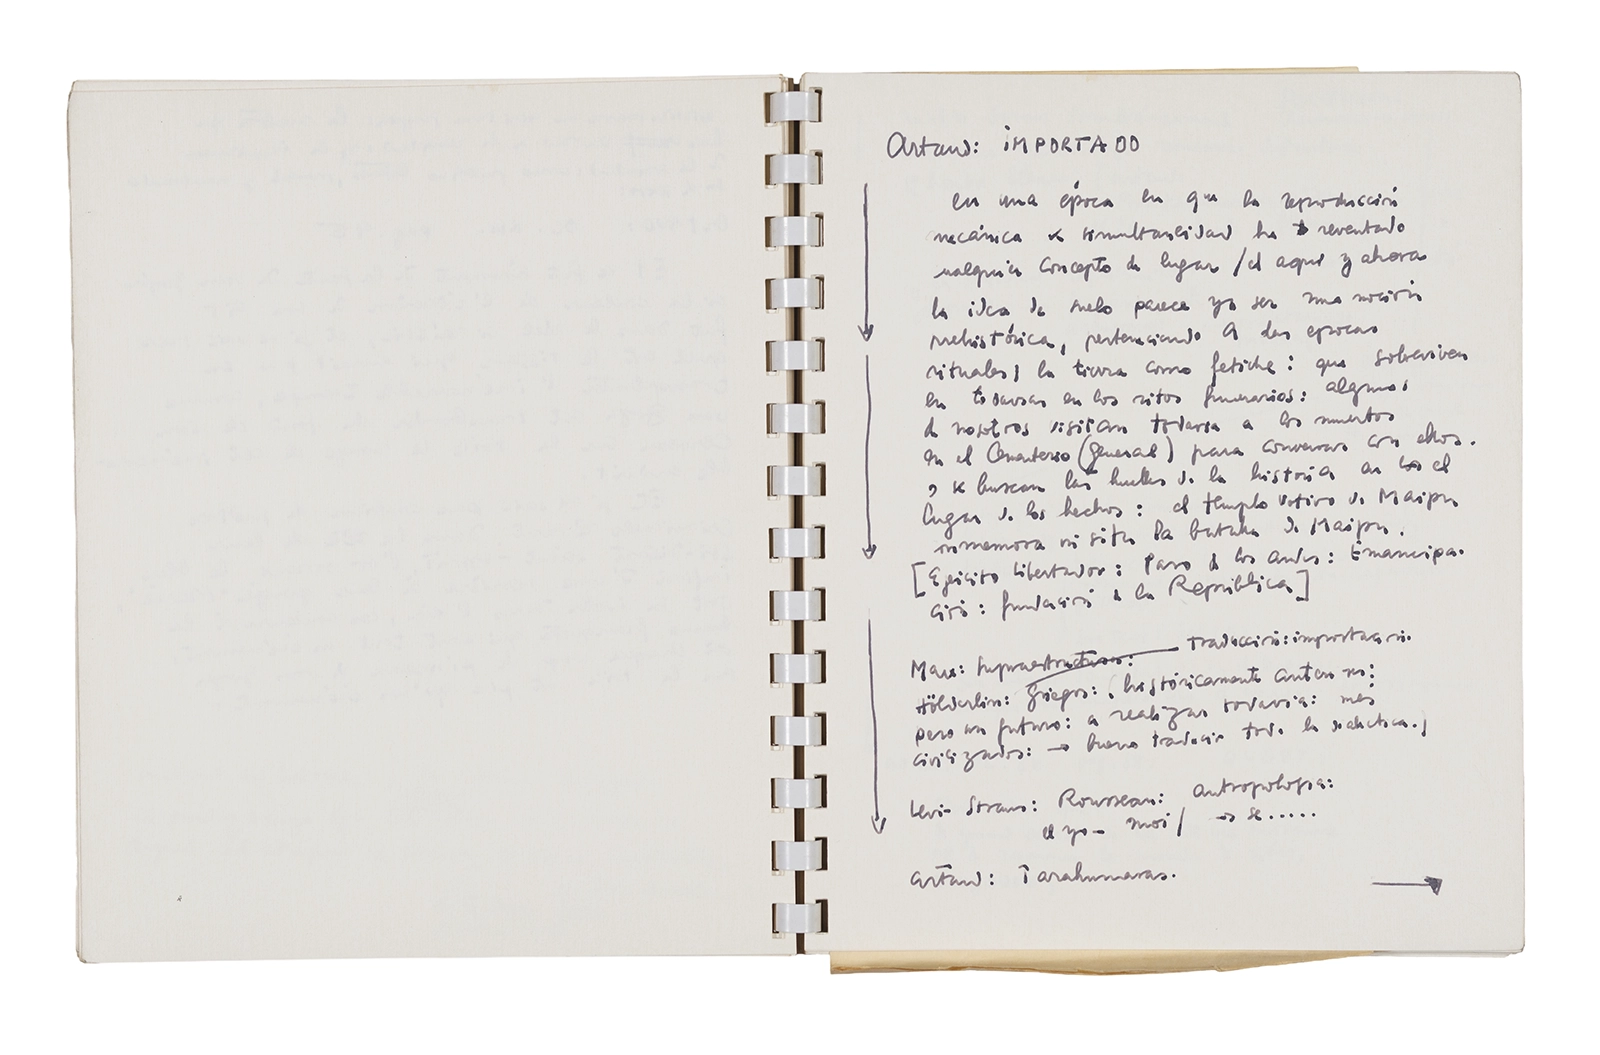 Artaud: IMPORTADO
en una época en que la reproducción
mecánica x simultaneidad ha reventado
cualquier concepto de lugar / el aquí y ahora
la idea de suelo parece ya ser una noción
prehistórica, perteneciendo a las epocas
rituales, la tierra como fetiche: que sobreviven
en todavía en los ritos funerarios: algunos
de nosotros visitan todavía a los muertos
en el Cementerio (General) para conversar con ellos.
, se buscan las huellas de la historia en el
lugar de los hechos: el templo votivo de Maipu
conmemora in situ la batalla de Maipu.
[Ejército libertador: Paso de los andes: Emancipa-
ción: fundación de la República]
Marx: Supraestructura: traducción: importación.
Hölderlin: griegos: históricamente anterior:
pero un futuro: a realizar todavía: más
civilizados: → traducir toda la dialéctica.,
Levi-Strauss: Rousseau: antropología:
el yo - moi / → se.....
artaud: Tarahumaras.
→